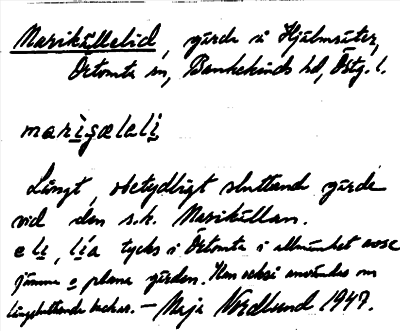 Marikällelid, gärde i Hjälmsäter,
Örtomta sn, Bankekinds hd, Östg. l.
marìgæleli
Långt, obetydligt sluttande gärde
vid den s.k. Marikällan.
e li, lia tycks i Örtomta i allmänhet avse
jämna o plana gärden. Kan också användas om
långsluttande backar. — Maja Nordlund 1947.